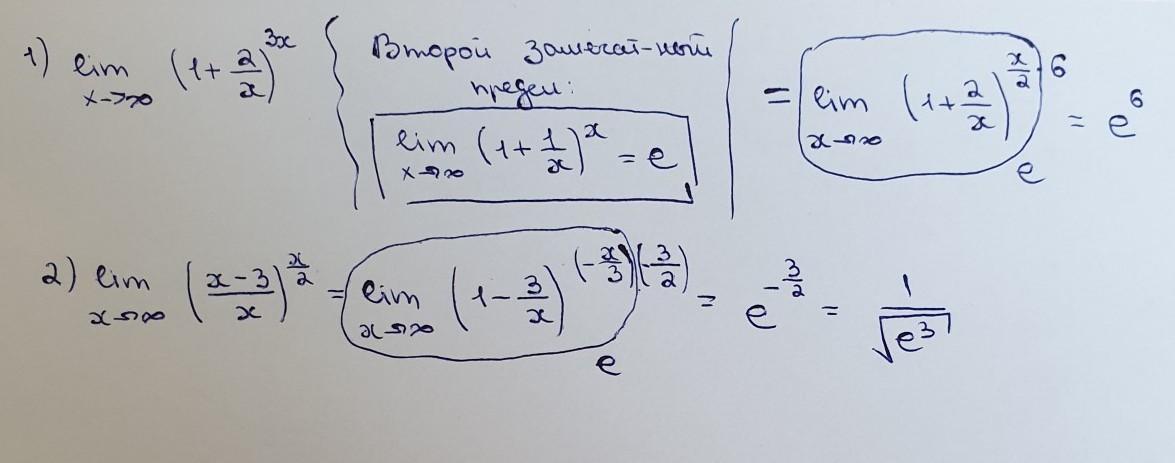 1) lim x→∞ (1+2/x)^3x { Второй замечат-ный предел: lim x→∞ (1+1/x)^x = e | = lim x→∞ (1+2/x)^x/2·6 = e^6
e
2) lim x→∞ ((x-3)/x)^x/2 = lim x→∞ (1-3/x)^(-x/3)(-3/2) = e^-3/2 = 1/√e^3
e